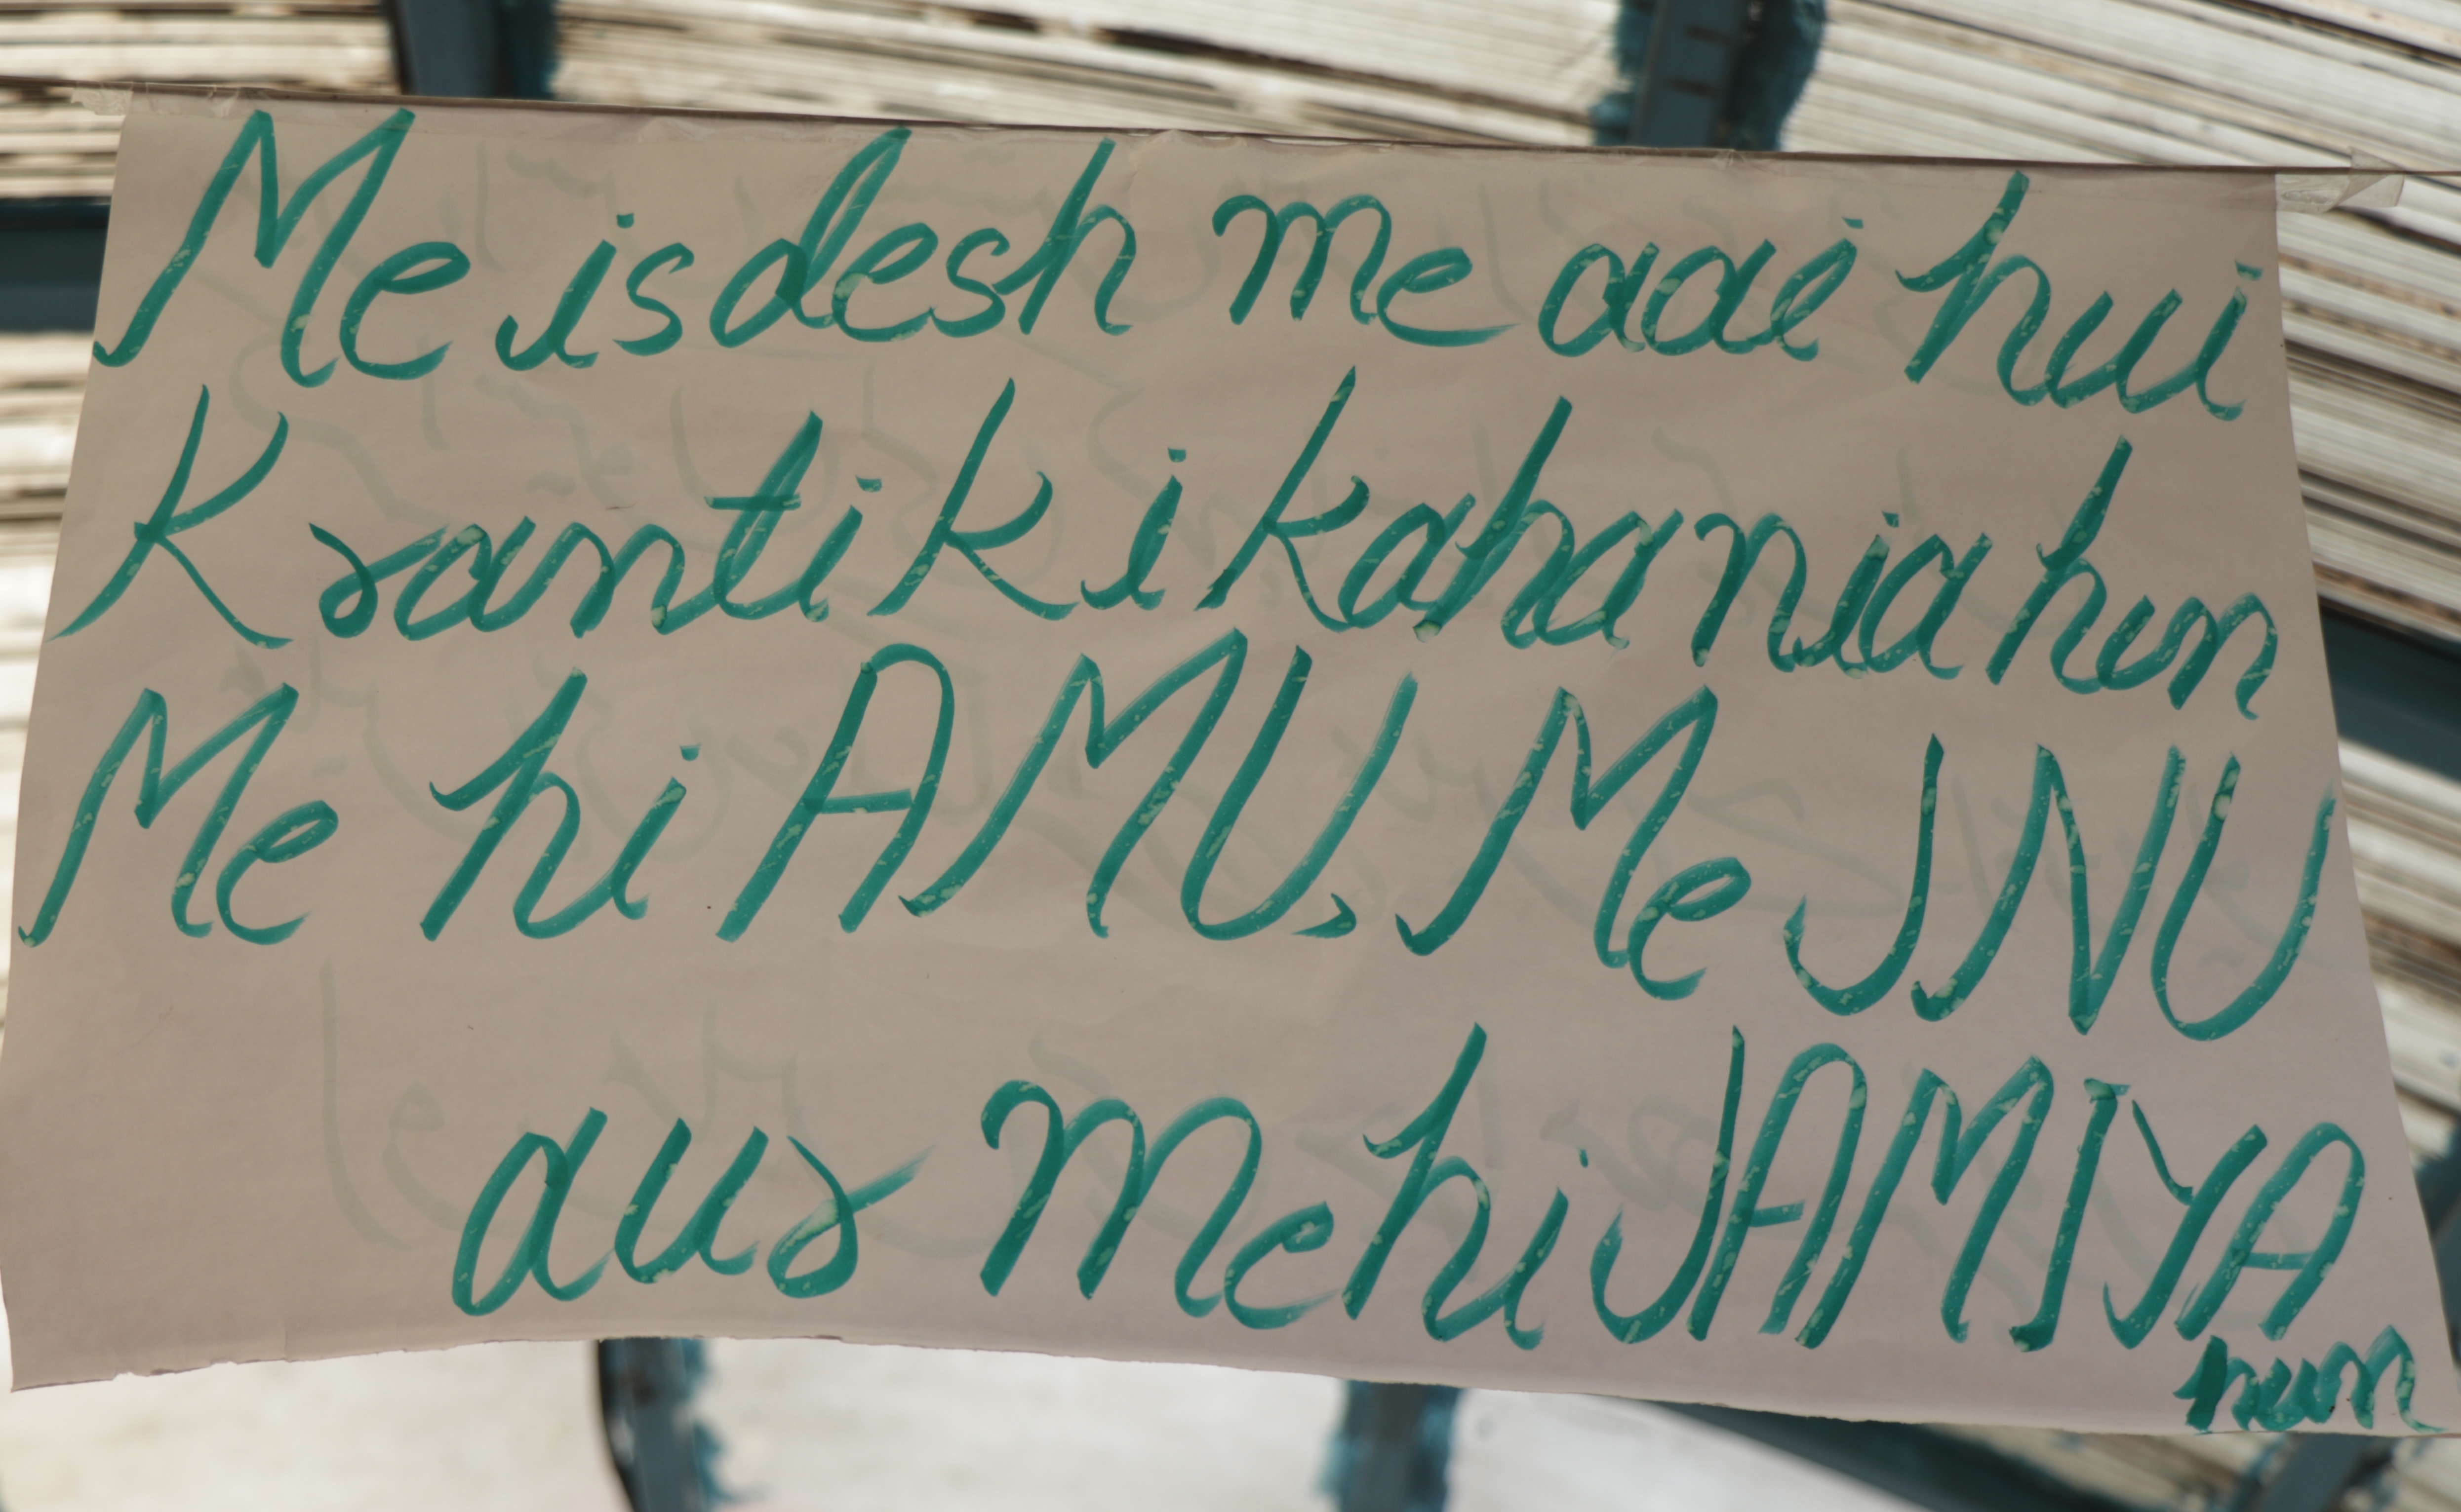 Me is desh me aai hui
Kranti ki kahania hun
Me hi AMU, Me JNU
aur me hi JAMIYA
hun